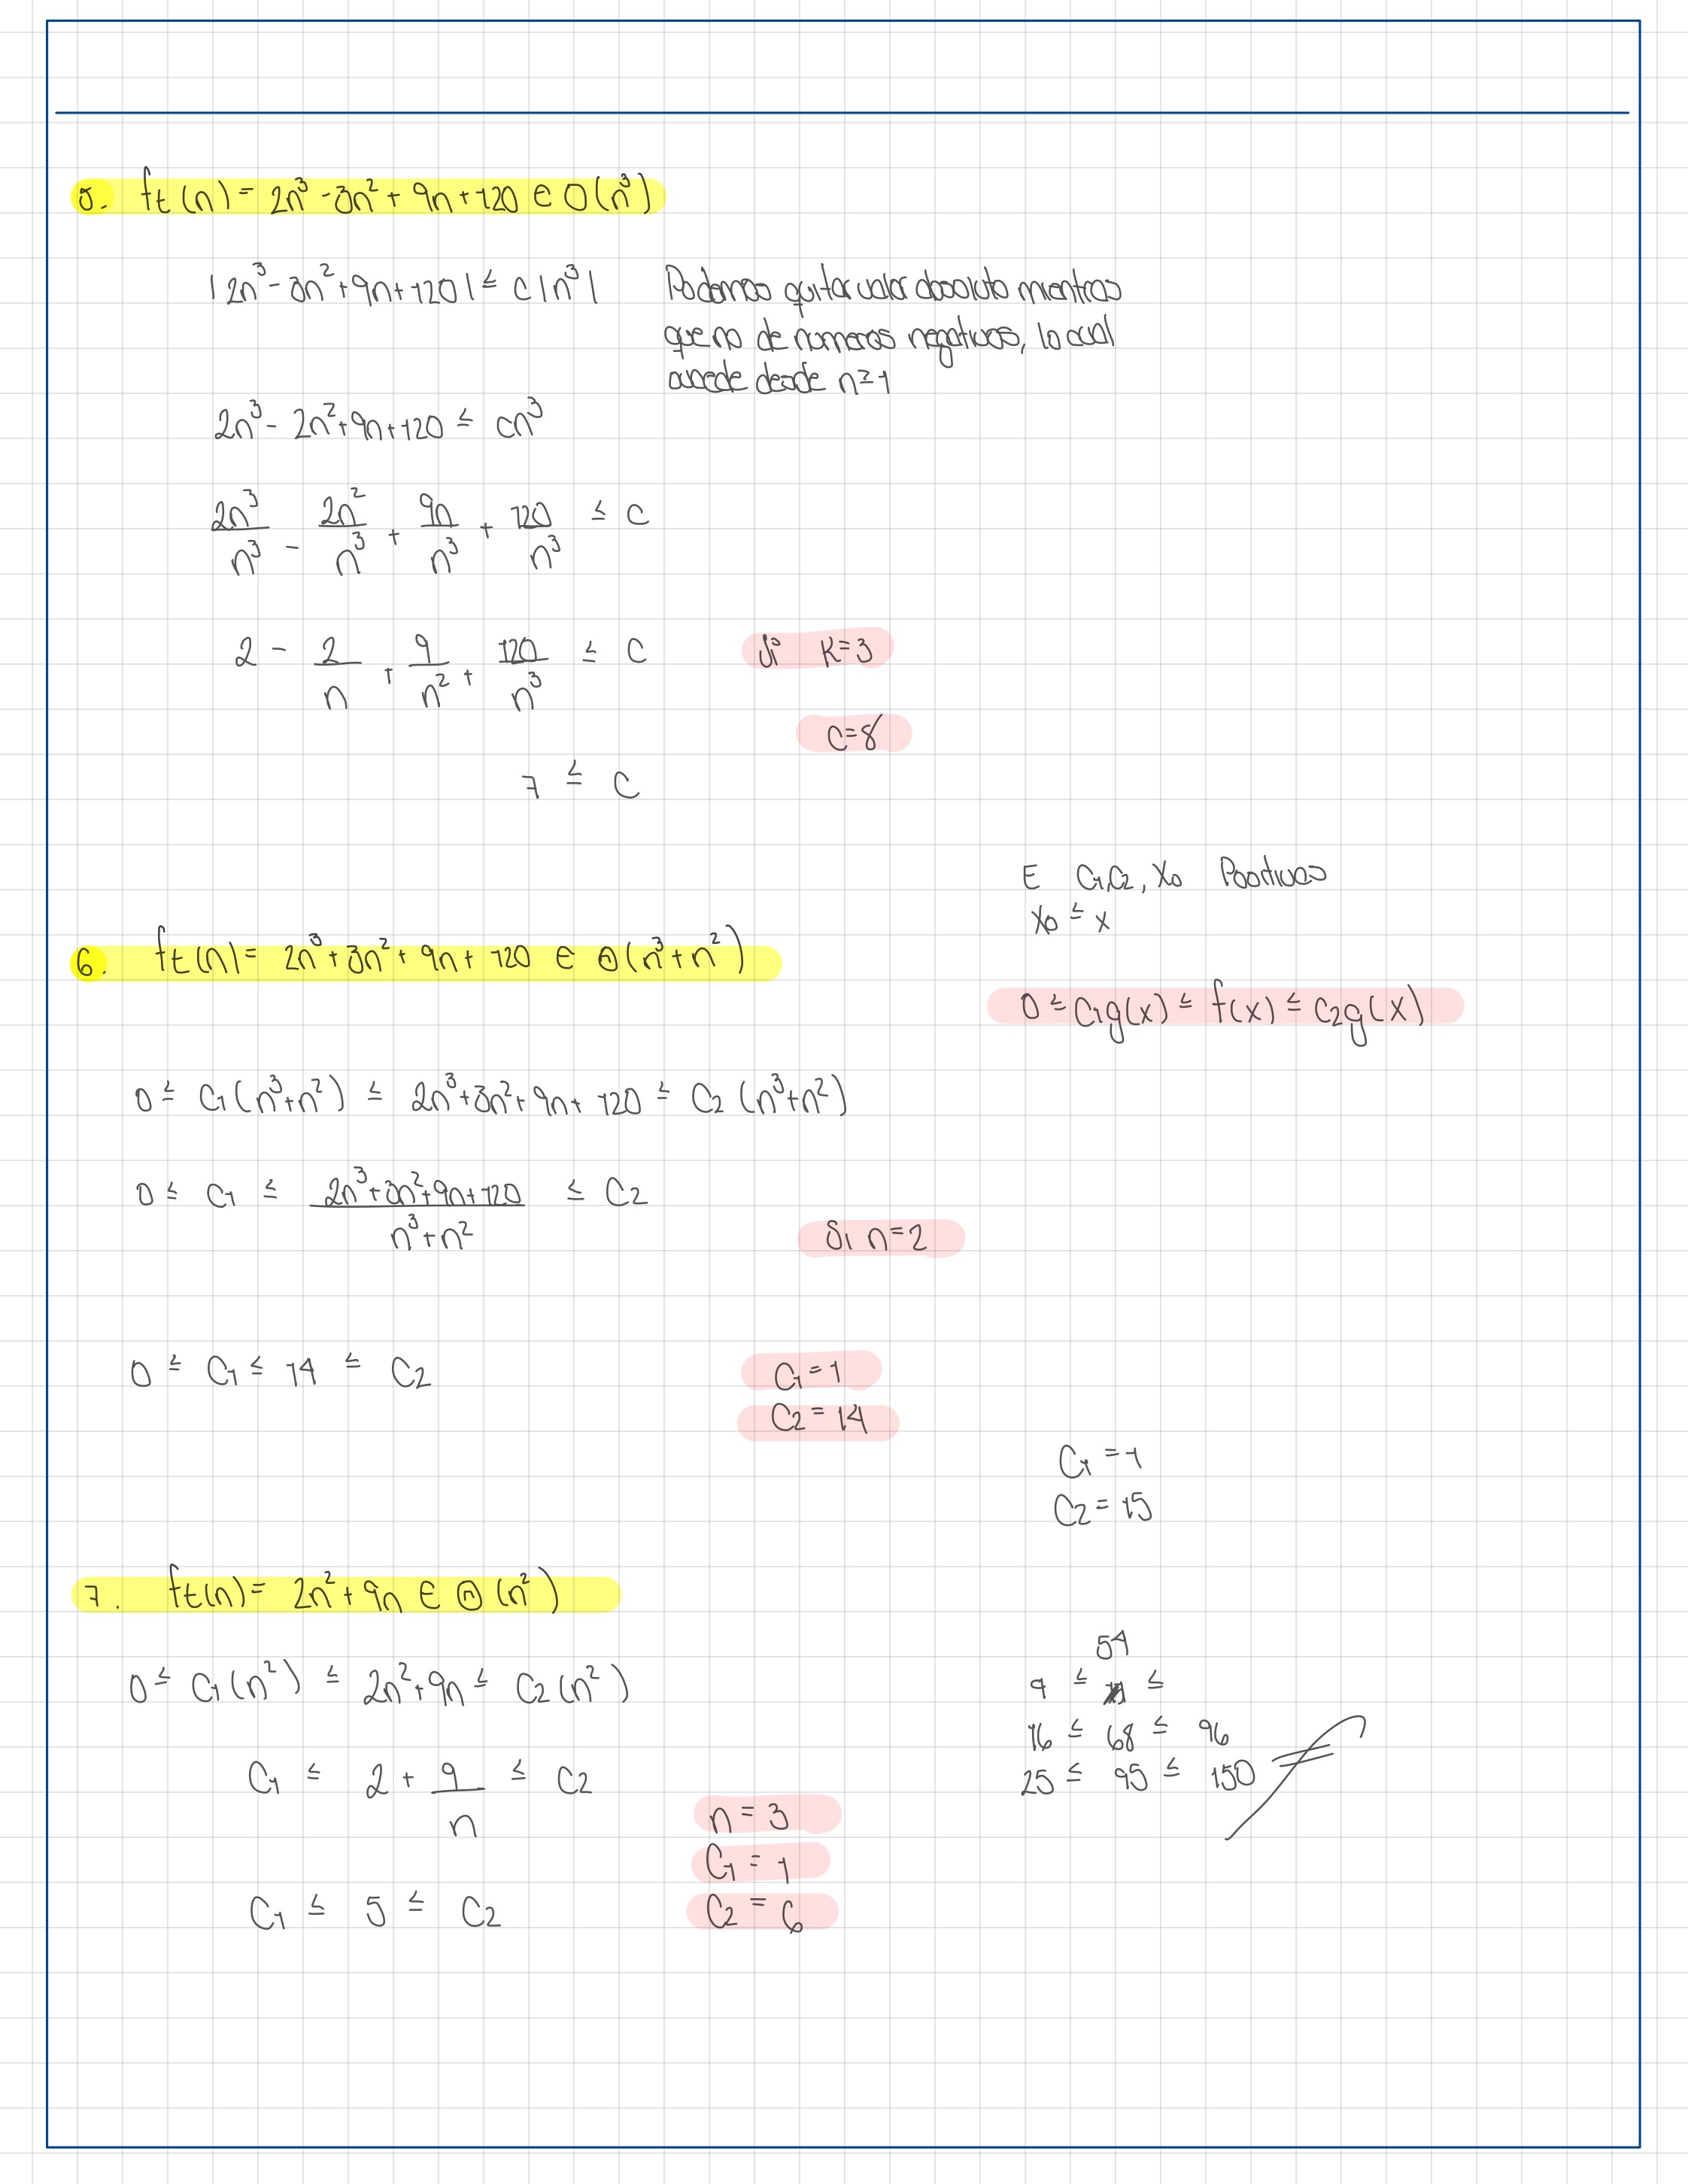 5. ft(n) = 2n³ - 3n² + 9n + 120 ∈ O(n³)
|2n³ - 3n² + 9n + 120| ≤ c|n³| Podemos quitar valor absoluto mientras
que no de numeros negativos, lo cual
sucede desde n ≥ 1
2n³ - 2n² + 9n + 120 ≤ cn³
2n³/n³ - 2n²/n³ + 9n/n³ + 120/n³ ≤ C
2 - 2/n + 9/n² + 120/n³ ≤ C Si K=3
C=8
7 ≤ C
E C1,C2, X0 Positivos
X0 ≤ x
6. ft(n) = 2n³ + 3n² + 9n + 120 ∈ Θ(n³+n²)
0 ≤ C1g(x) ≤ f(x) ≤ C2g(x)
0 ≤ C1(n³+n²) ≤ 2n³+3n²+9n+120 ≤ C2(n³+n²)
0 ≤ C1 ≤ (2n³+3n²+9n+120)/(n³+n²) ≤ C2
Si n=2
0 ≤ C1 ≤ 14 ≤ C2 C1=1
C2=14
C1=1
C2=15
7. ft(n) = 2n² + 9n ∈ Θ(n²)
54
0 ≤ C1(n²) ≤ 2n²+9n ≤ C2(n²) 9 ≤ ≤
16 ≤ 68 ≤ 96
C1 ≤ 2 + 9/n ≤ C2 25 ≤ 95 ≤ 150
n = 3
C1 = 1
C1 ≤ 5 ≤ C2 C2 = 6